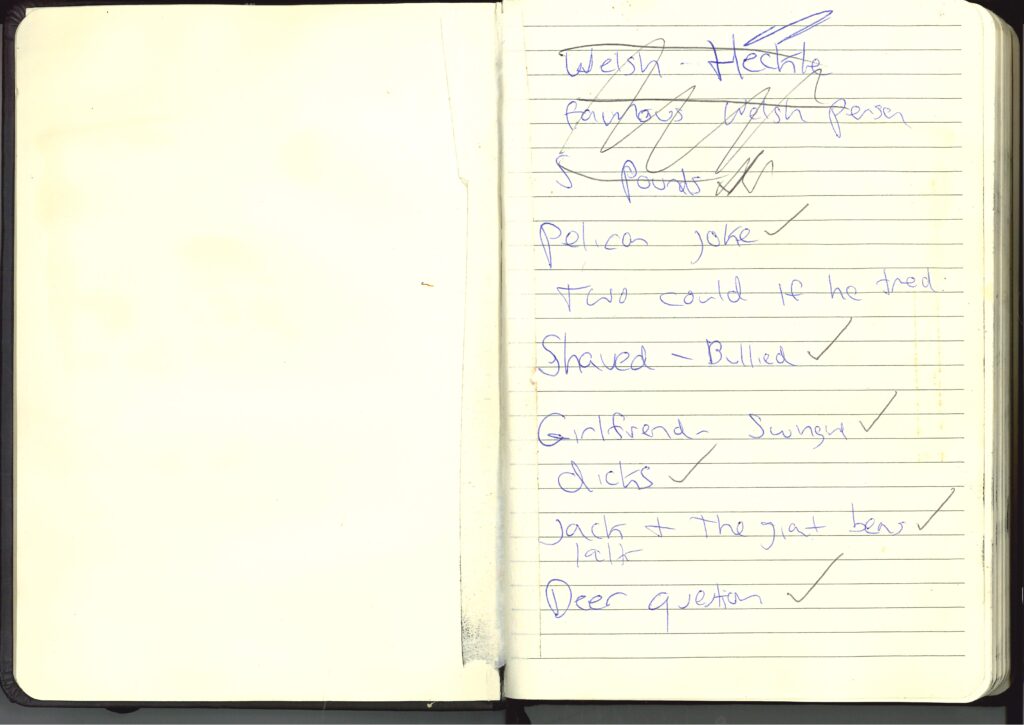 Welsh - Heckle
famous Welsh person
5 pounds
Pelican joke
Two could if he tried.
Shaved - Bullied
Girlfrend -
dicks
Jack + The giat bens
Deer question